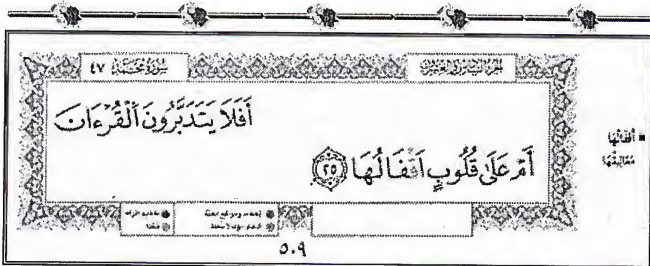 الجزء السادس والعشرون
سورة محمد ٤٧
أَفَلَا يَتَدَبَّرُونَ ٱلْقُرْءَانَ
أَمْ عَلَىٰ قُلُوبٍ أَقْفَالُهَا ٢٥
■ أقفالها
مغاليقها
٥٠٩